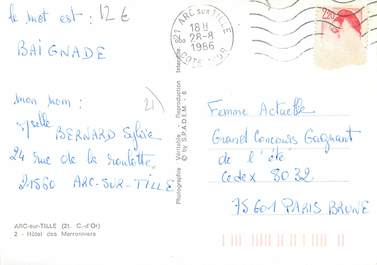 le mot est : 12 €
BAIGNADE
mon nom : 21)
Melle BERNARD Sylvie
24 rue de la roulotte
21560 ARC-SUR-TILLE
ARC-sur-TILLE (21. C.-d'Or)
2 - Hôtel des Marronniers
Photographie Véritable - Reproduction Interdite
© by S.P.A.D.E.M. - 6
21 ARC SUR TILLE
18 H
28-8
1986
COTE D'OR
2,20
Femme Actuelle
Grand Concours Gagnant
de l'été
Cedex 8032
75601 PARIS BRUNE